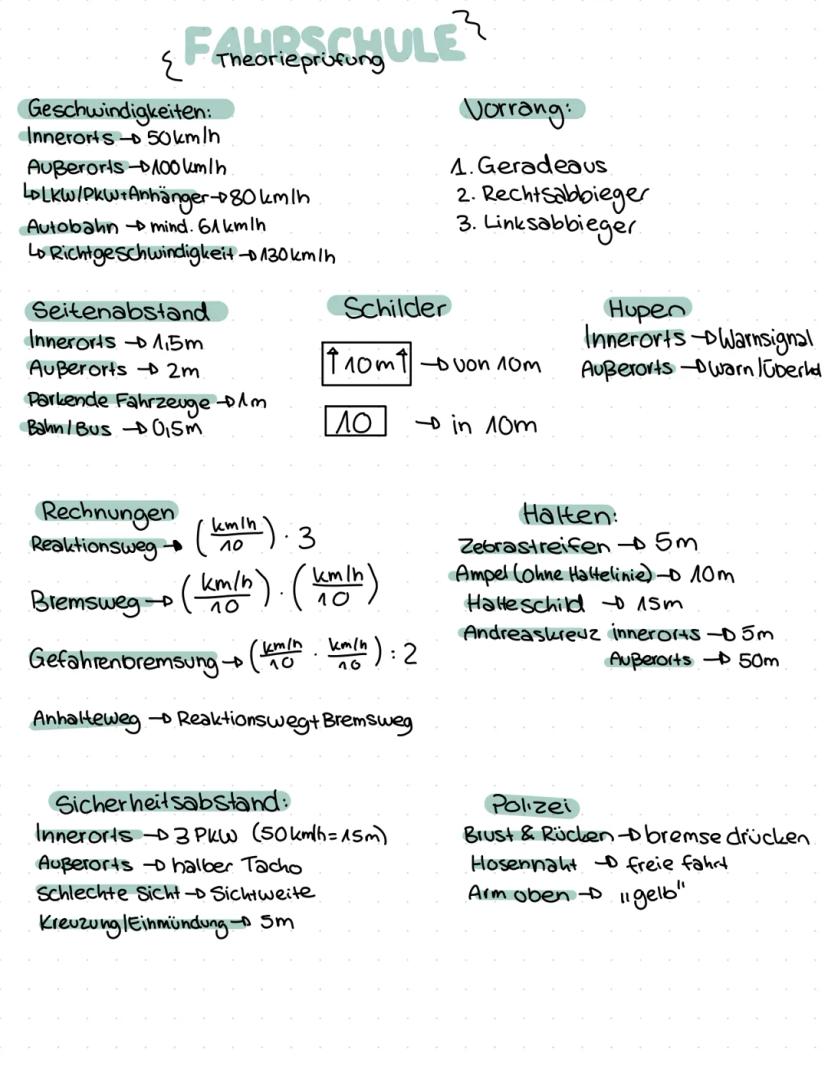 FAHRSCHULE
{ Theorieprüfung }
Geschwindigkeiten:
Innerorts → 50 km/h
Außerorts → 100 km/h
↳ LKW/PKW+Anhänger → 80 km/h
Autobahn → mind. 61 km/h
↳ Richtgeschwindigkeit → 130 km/h
Vorrang:
1. Geradeaus
2. Rechtsabbieger
3. Linksabbieger
Seitenabstand
Innerorts → 1,5m
Außerorts → 2m
Parkende Fahrzeuge → 1m
Bahn/Bus → 0,5m
Schilder
↑10m↑ → von 10m
10 → in 10m
Hupen
Innerorts → Warnsignal
Außerorts → warn/
Rechnungen
Reaktionsweg → (km/h / 10) · 3
Bremsweg → (km/h / 10) · (km/h / 10)
Gefahrenbremsung → (km/h / 10 · km/h / 10) : 2
Anhalteweg → Reaktionsweg + Bremsweg
Halten:
Zebrastreifen → 5m
Ampel (ohne Haltelinie) → 10m
Halteschild → 15m
Andreaskreuz innerorts → 5m
Außerorts → 50m
Sicherheitsabstand:
Innerorts → 3 PKW (50 km/h = 15m)
Außerorts → halber Tacho
Schlechte Sicht → Sichtweite
Kreuzung/Einmündung → 5m
Polizei
Brust & Rücken → bremse drücken
Hosennaht → freie fahrt
Arm oben → „gelb"